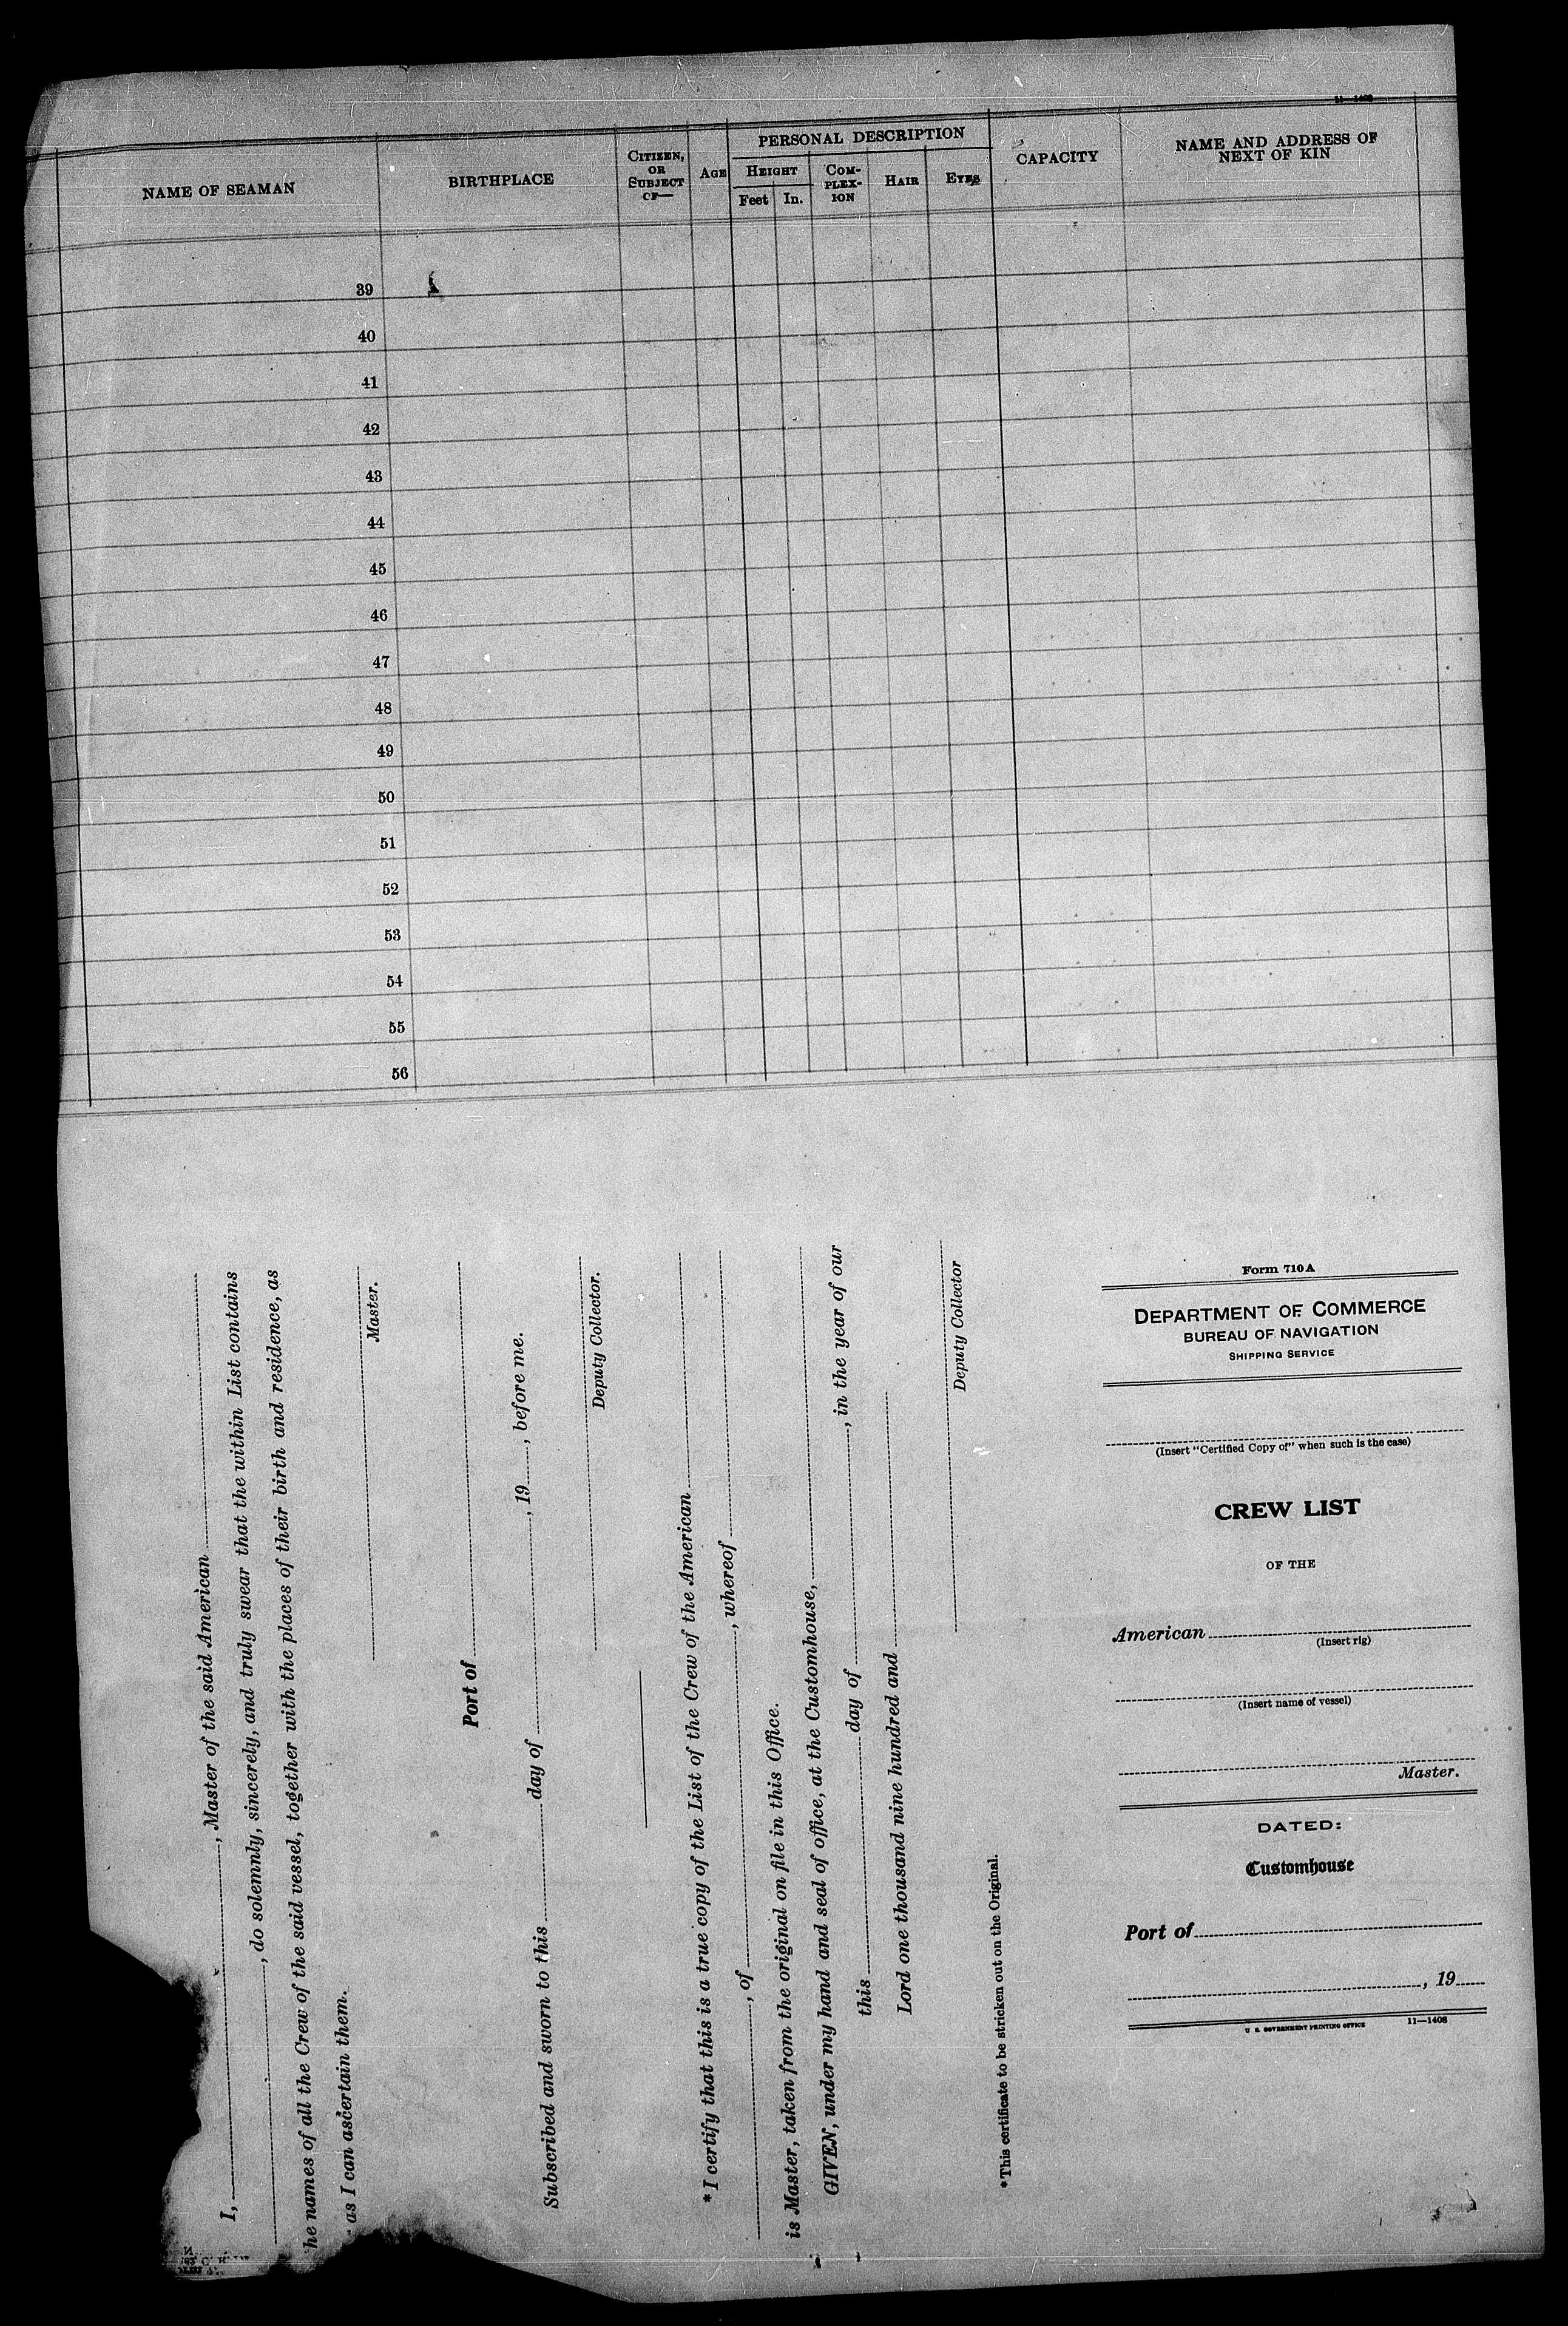 11—1408
NAME OF SEAMAN
BIRTHPLACE
CITIZEN,
OR
SUBJECT
OF—
AGE
PERSONAL DESCRIPTION
HEIGHT
Feet
In.
COM-
PLEX-
ION
HAIR
EYES
CAPACITY
NAME AND ADDRESS OF
NEXT OF KIN
39
40
41
42
43
44
45
46
47
48
49
50
51
52
53
54
55
56
I, , Master of the said American
, do solemnly, sincerely, and truly swear that the within List contains
he names of all the Crew of the said vessel, together with the places of their birth and residence, as
as I can ascertain them.
Master.
Port of
Subscribed and sworn to this day of , 19 , before me.
Deputy Collector.
*I certify that this is a true copy of the List of the Crew of the American
, of , whereof
is Master, taken from the original on file in this Office.
GIVEN, under my hand and seal of office, at the Customhouse,
this day of , in the year of our
Lord one thousand nine hundred and
Deputy Collector
*This certificate to be stricken out on the Original.
Form 710A
DEPARTMENT OF COMMERCE
BUREAU OF NAVIGATION
SHIPPING SERVICE
(Insert "Certified Copy of" when such is the case)
CREW LIST
OF THE
American
(Insert rig)
(Insert name of vessel)
Master.
DATED:
Customhouse
Port of
, 19
U. S. GOVERNMENT PRINTING OFFICE 11—1408